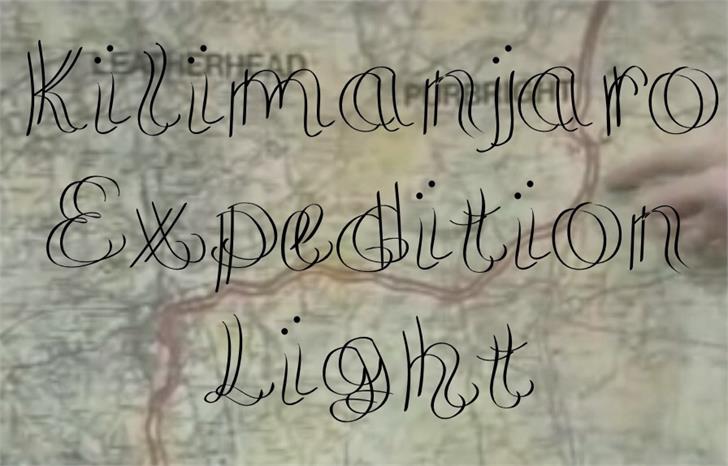 LEATHERHEAD
PIRBRIGHT
Kilimanjaro
Expedition
Light